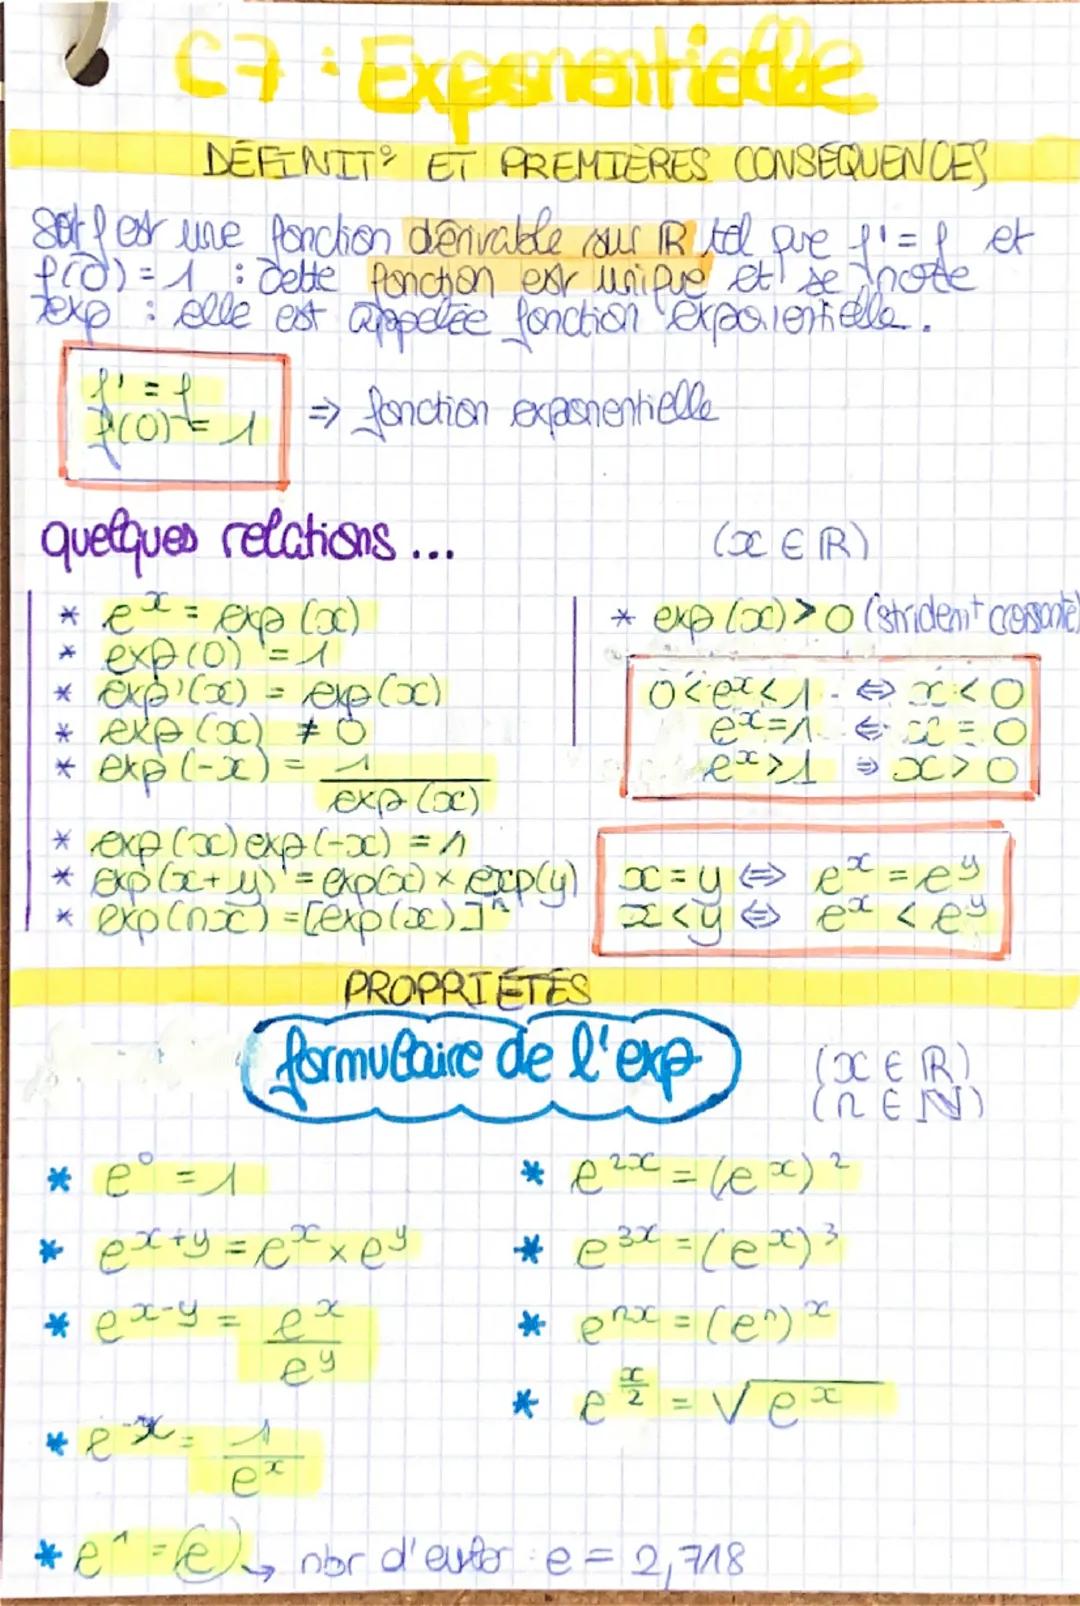 C7 : Exponentielle
DÉFINIT° ET PREMIÈRES CONSEQUENCES
Soit f est une fonction dérivable sur ℝ tel que f' = f et
f(0) = 1 : cette fonction est unique et se note
exp : elle est appelée fonction exponentielle.
f' = f
f(0) = 1
⇒ fonction exponentielle
quelques relations ...
(x ∈ ℝ)
* e^x = exp (x)
* exp(0) = 1
* exp'(x) = exp(x)
* exp (x) ≠ 0
* exp (-x) = 1/exp (x)
* exp (x) exp (-x) = 1
* exp (x+y) = exp(x) × exp(y)
* exp (nx) = [exp(x)]^n
* exp (x) > 0 (stridem^t croissante)
0 < e^x < 1 ⇔ x < 0
e^x = 1 ⇔ x = 0
e^x > 1 ⇔ x > 0
x = y ⇔ e^x = e^y
x < y ⇔ e^x < e^y
PROPRIÉTÉS
formulaire de l'exp
(x ∈ ℝ)
(n ∈ ℕ)
* e^0 = 1
* e^(x+y) = e^x × e^y
* e^(x-y) = e^x/e^y
* e^(-x) = 1/e^x
* e^1 = e → nbr d'euler : e = 2,718
* e^(2x) = (e^x)^2
* e^(3x) = (e^x)^3
* e^(nx) = (e^n)^x
* e^(x/2) = √(e^x)